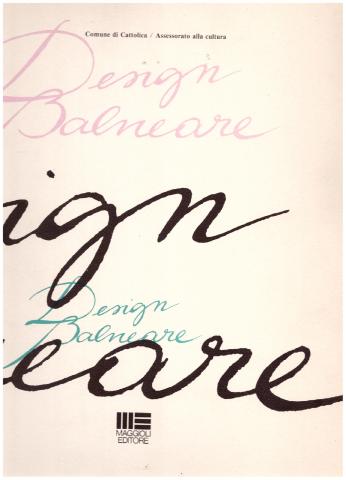 Comune di Cattolica / Assessorato alla cultura
Design
Balneare
ign
Design
Balneare
eare
MAGGIOLI
EDITORE